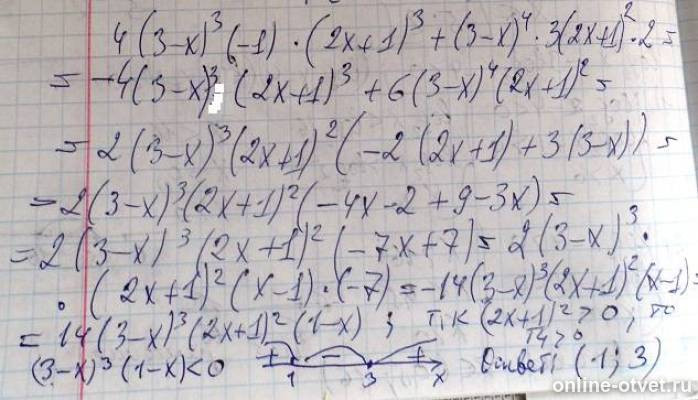 4(3-x)³(-1)·(2x+1)³+(3-x)⁴·3(2x+1)²·2=
=-4(3-x)³(2x+1)³+6(3-x)⁴(2x+1)²=
=2(3-x)³(2x+1)²(-2(2x+1)+3(3-x))=
=2(3-x)³(2x+1)²(-4x-2+9-3x)=
=2(3-x)³(2x+1)²(-7x+7)=2(3-x)³·
·(2x+1)²(x-1)·(-7)=-14(3-x)³(2x+1)²(x-1)=
=14(3-x)³(2x+1)²(1-x); т.к (2x+1)²>0; то
14>0
(3-x)³(1-x)<0 + - + 1 3 x Ответ: (1; 3)
online-otvet.ru